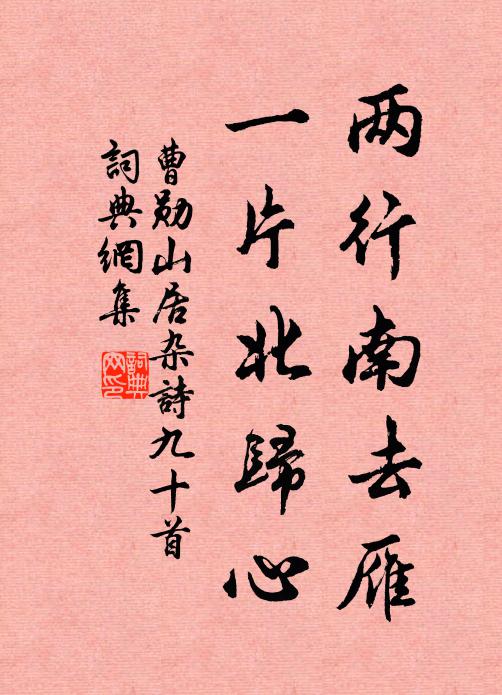 两行南去雁
一片北歸心
曹勋山居杂詩九十首
詞典網集
詞典
网印